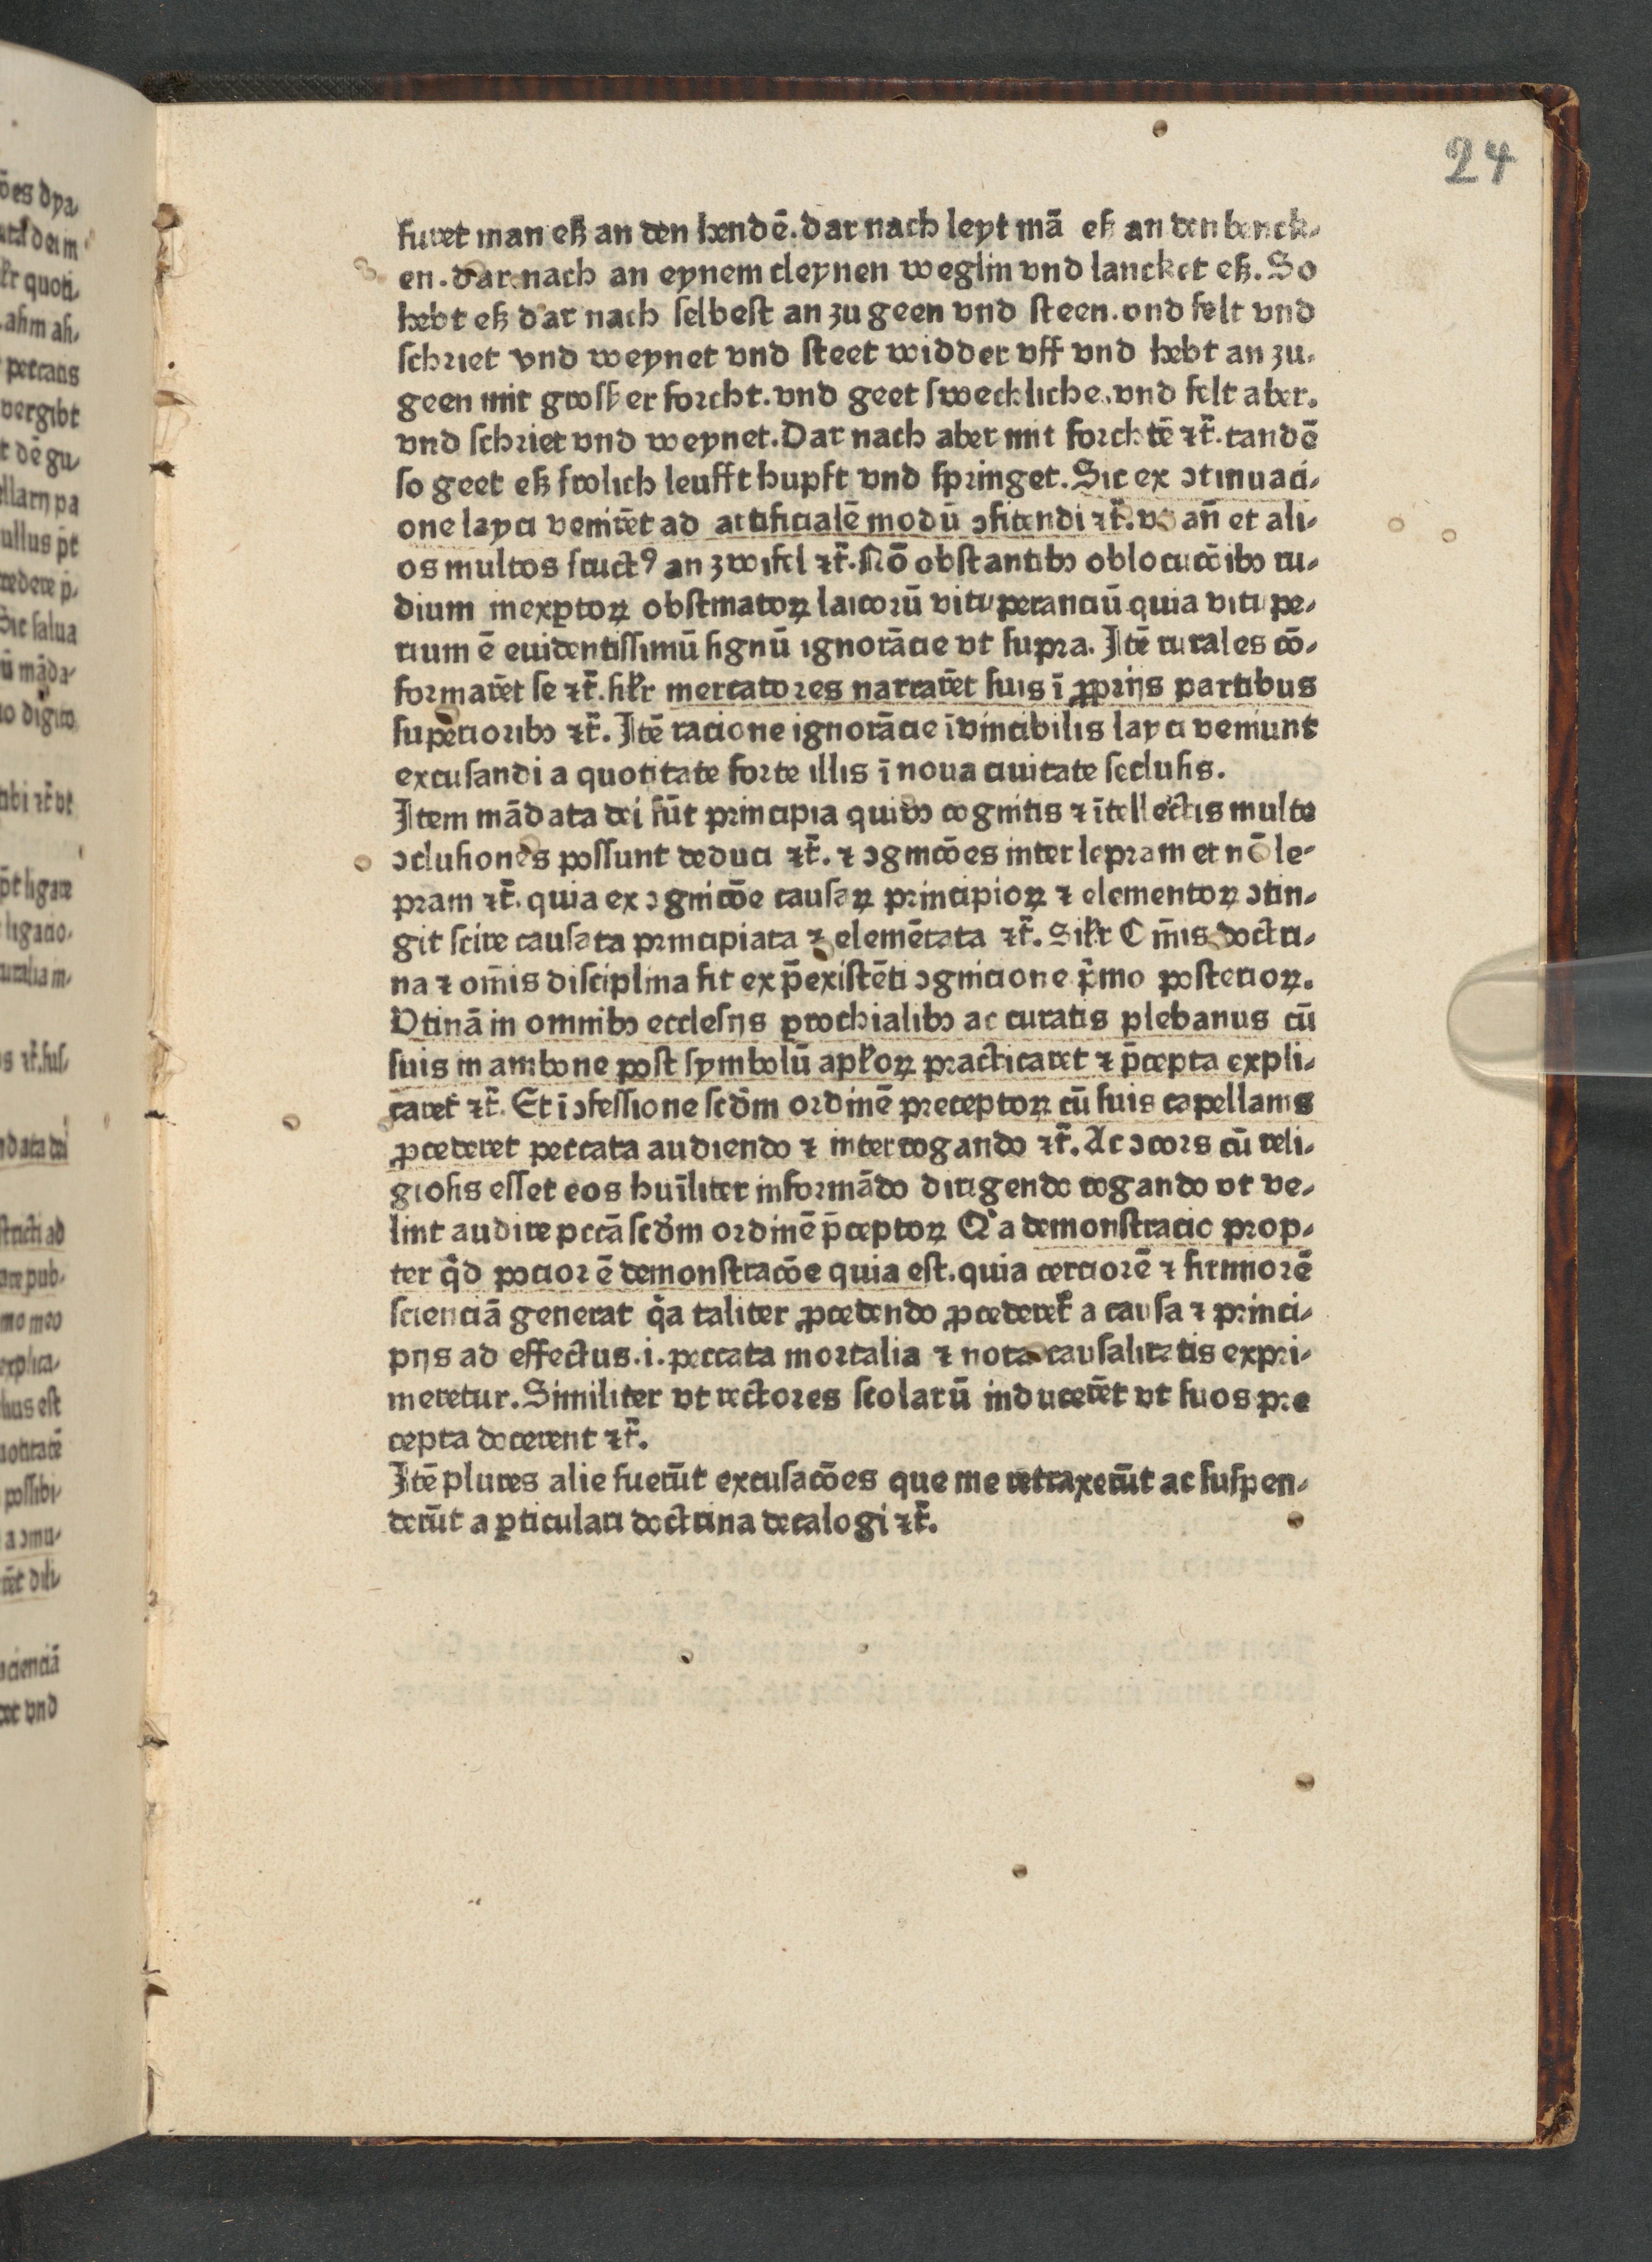 24
furet man eß an den hendē. dar nach leyt mā eß an den benck⸗
en. dar nach an eynem cleynen weglin vnd lancket eß. So
hebt eß dar nach selbest an zu geen vnd steen. vnd felt vnd
schriet vnd weynet vnd steet widder vff vnd hebt an zu⸗
geen mit grosser forcht. vnd geet swechliche. vnd felt aber.
vnd schriet vnd weynet. Dar nach aber mit forchtē ⁊c̃. tandē
so geet eß frolich leufft hupft vnd springet. Sic ex ↄtinuaci⸗
one layci venirēt ad artificialē modū ↄfitendi ⁊c̃. vñ añ et ali⸗
os multos fructꝰ an zwifel ⁊c̃. Nō obstantibꝫ oblocucōibꝫ ru⸗
dium inexꝑtoꝝ obstinatoꝝ laicorū vituperanciū quia vitupe⸗
rium ē euidentissimū signū ignorācie vt supra. Itē rurales cō⸗
formarēt se ⁊c̃. silr̄ mercatores narrarēt suis ī ꝓprijs partibus
superioribꝫ ⁊c̃. Itē racione ignorācie īvincibilis layci veniunt
excusandi a quotitate forte illis ī noua ciuitate seclusis.
Item mādata dei sūt principia quibꝫ cognitis ⁊ ītellectis multe
ↄclusiones possunt deduci ⁊c̃. ⁊ ↄgnicōes inter lepram et nō le⸗
pram ⁊c̃. quia ex ↄgnicōe causaꝝ principioꝝ ⁊ elementoꝝ ↄtin⸗
git scire causata principiata ⁊ elemētata ⁊c̃. Silr̄ Om̄is doctri⸗
na ⁊ om̄is disciplina fit ex p̄existēti ↄgnicione pͥmo posterioꝝ.
Vtinā in omnibꝫ ecclesijs ꝑrochialibꝫ ac curatis plebanus cū
suis in ambone post symbolū apl̄oꝝ practicaret ⁊ p̄cepta expli⸗
caret ⁊c̃. Et ī ↄfessione scd̄m ordinē preceptoꝝ cū suis capellanis
ꝓcederet peccata audiendo ⁊ interrogando ⁊c̃. Ac ↄcors cū reli⸗
giosis esset eos huīliter informādo dirigendo rogando vt ve⸗
lint audire pccā scd̄m ordinē p̄ceptoꝝ Qͥa demonstracio prop⸗
ter qͥd pocior ē demonstracōe quia est. quia cerciorē ⁊ firmiorē
scienciā generat qͥa taliter ꝓcedendo ꝓcederet᷑ a causa ⁊ princi⸗
pijs ad effectus .i. peccata mortalia ⁊ nota causalitatis expri⸗
meretur. Similiter vt rectores scolarū inducerēt vt suos pre
cepta docerent ⁊c̃.
Itē plures alie fuerūt excusacōes que me retraxerūt ac suspen⸗
derūt a ꝑticulari doctrina decalogi ⁊c̃.